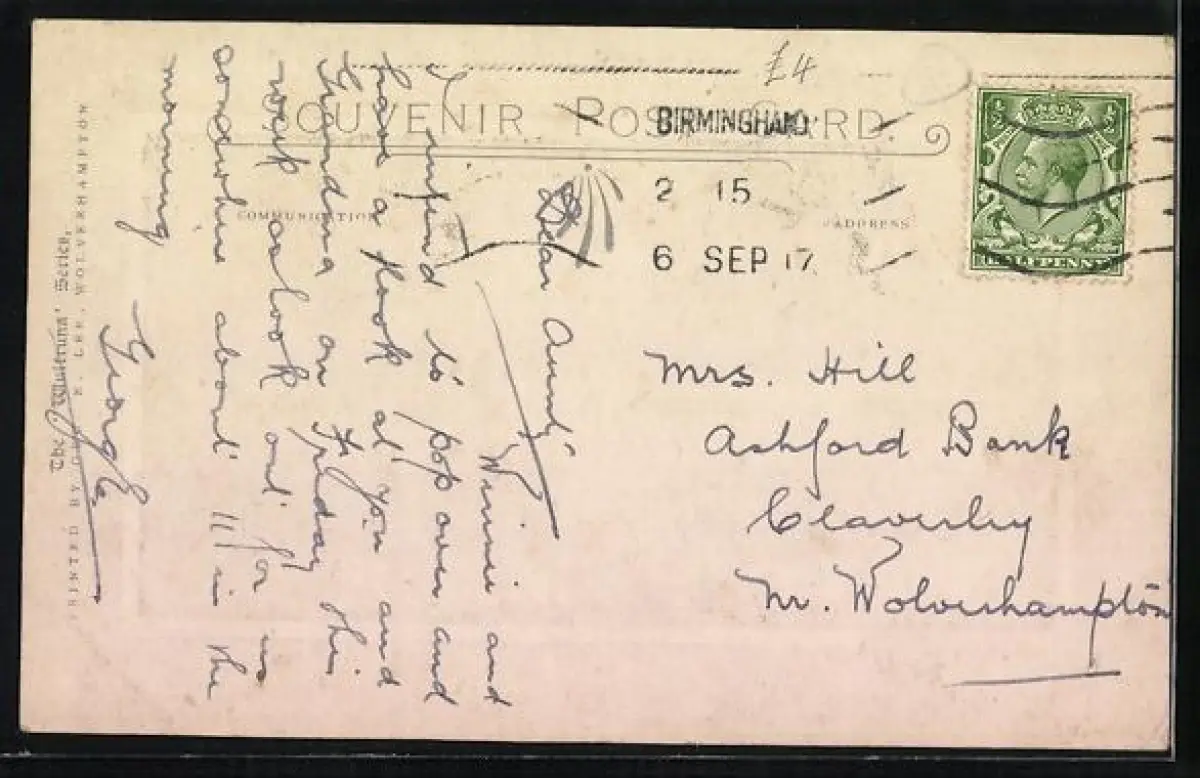 £4
SOUVENIR POST CARD.
BIRMINGHAM
2 15
6 SEP 17
COMMUNICATION
ADDRESS
HALFPENNY
Mrs. Hill
Ashford Bank
Claverley
Nr. Wolverhampton
Dear Aunty
Winnie and
I intend to pop over and
have a look at you and
Grandma on Friday this
week so look out for us
somewhere about 11 in the
morning
George
The 'Wulfruna' Series.
PRINTED BY LEE, WOLVERHAMPTON